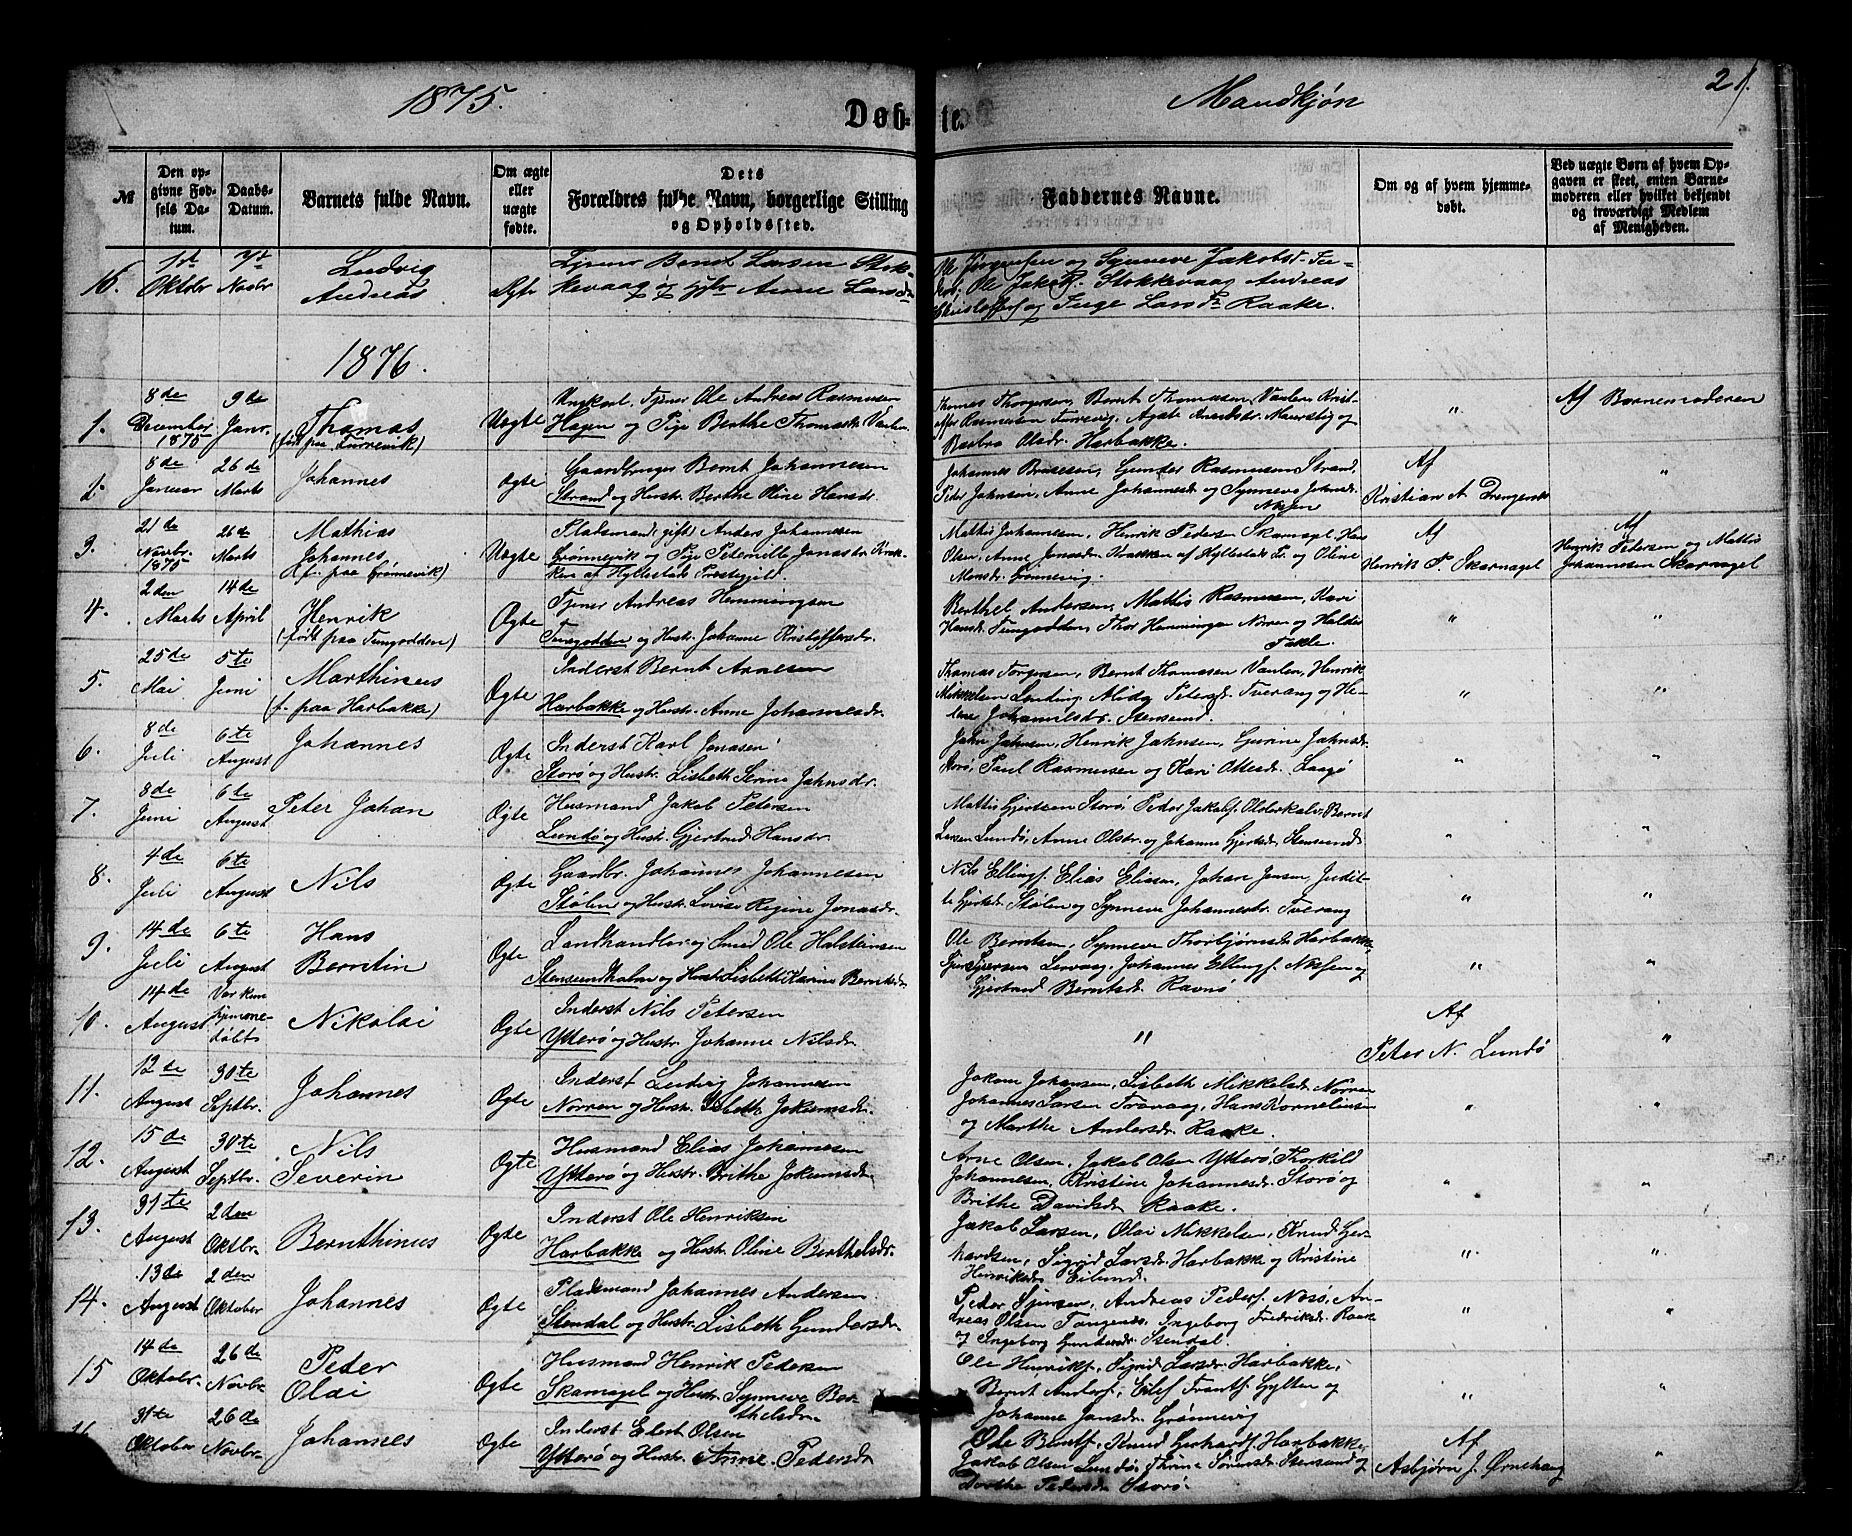 1875.
Døb-
te.
Mandkjøn
21.
№
Den op-
givne Fød-
sels Da-
tum.
Daabs-
Datum.
Barnets fulde Navn.
Om ægte
eller
uægte
fødte.
Dets
Forældres fulde Navn, borgerlige Stilling
og Opholdssted.
Faddernes Navne.
Om og af hvem hjemme-
døbt.
Ved uægte Børn af hvem Op-
gaven er skeet, enten Barne-
moderen eller hvilket bekjendt
og troværdigt Medlem
af Menigheden.
16. Oktobr Novbr
Ludvig
Andreas
Bernt Larsen Stok-
kevaag og Anne
og Synneve Jakobsd.
Ole Stokkevaag Andreas
og Inge Larsdr Raake.
1876.
1.
8de
December
1875
9de
Janr.
Thomas
(født paa Furrevik)
Uægte
Ungkarl, Tjener Ole Andreas Rasmussen
Hagen og Pige Berthe Thomasdr.
Thomas Thorgersen, Bernt Thomassen Vaulen, Krist-
offer Rasmussen
Barbra Olsdr. Harbakke.
"
Af Barnemoderen
2.
8de
Januar
26de
Marts
Johannes
Ægte
Gaardbruger Bernt Johannesen
Strand og Hustr. Berthe Oline Hansdr.
Johannes Gunder Rasmussen Strand,
Peder Johnsen, Anne Johannesdr. og Synneve Johnsdr.
Af
Kristian A.
"
3.
21de
Novbr.
1875
26de
Marts
Mathias
Johannes
(f. paa Grønnevik)
Uægte
Pladsmand (gift) Anders Johannesen
Grønnevik og Pige Peternille Jonasdr. Krak-
ken af Hyllestads Præstegjeld.
Mattis Johannesen, Henrik Pedersen Skarnagel, Hans
Olsen, Anne Jonasdr. Krakken af Hyllestads Pr. og Oline
Monsdr. Grønnevig.
Af
Henrik P. Skarnagel
Af
Henrik Petersen og Mattis
Johannesen Skarnagel
4.
2den
Marts
14de
April
Henrik
(født paa Tungodden)
Ægte
Tjener Andreas Hemmingsen
Tungodden og Hustr. Johanne Kristoffersdr.
Berthel Andersen, Mattis Rasmussen, Kari
Hansdr. Tungodden, Thor Norren og
"
"
5.
25de
Mai
5te
Juni
Marthinus
(f. paa Harbakke)
Ægte
Inderst Bernt Arnesen
Harbakke og Hustr. Anne Johannesdr.
Thomas Torgersen, Bernt Thomassen Vaulen, Henrik
Mikkelsen Petersdr. Tverang og He-
lene Stensund.
"
"
6.
8de
Juli
6te
August
Johannes
Ægte
Inderst Karl Jonasen
Storø og Hustr. Lisbeth Serine Jahnsdr.
Jahn Jahnsen, Henrik Jahnsen, Gurine Jahnsdr.
Storø, Paul Rasmussen og Kari Ottesdr. Laagø
"
"
7.
8de
Juni
6te
August
Peter Johan
Ægte
Husmand Jakob Petersen
Lundø og Hustr. Gjertrud Hansdr.
Mattis Gjertsen Storø, Peder Jakobs. Bernt
Larsen Lundø, Anne Olsdr. og Johanne Gjertsdr. Stensund
"
"
8.
4de
Juli
6te
August
Nils
Ægte
Gaardbr. Johannes Johannesen
Stølen og Hustr. Lovise Regine Jonasdr.
Nils Ellings. Elias Eliasen, Johan Jensen, Judit-
te Gjertsdr. Stølen og Synneve Johannesdr. Tverang
"
"
9.
14de
Juli
6te
August
Hans
Berntin
Ægte
Landhandler og Smed Ole Halsteinsen
Stensundholm og Hustr. Lisbeth Karine Berntsdr.
Ole Berntsen, Synneve Thorbjørnsdr. Harbakke,
Johannes Ellings. og
Gjertrud Berntsdr. Ravnø
"
"
10.
14de
August
Var kun
hjemme-
døbt
Nikolai
Ægte
Inderst Nils Petersen
Ytterø og Hustr. Johanne Nilsdr.
"
Af
Peter N. Lundø
"
11.
12de
August
30te
Septbr.
Johannes
Ægte
Inderst Ludvig Johannesen
Norren og Hustr. Lisbeth Jokumsdr.
Jokum Johansen, Lisbeth Mikkelsdr. Norren
Johannes Larsen Travaag, Hans Kornelius-
og Marthe Andersdr. Raake.
"
"
12.
15de
August
30te
Septbr.
Nils
Severin
Ægte
Husmand Elias Johannesen
Ytterø og Hustr. Brithe Jokumsdr.
Arne Olsen, Jakob Olsen Ytterø, Thorkild
Johannesen, Kristine Johannesdr. Storø og
Brithe Davidsdr. Raake.
"
"
13.
31te
August
2den
Oktbr.
Bernthinus
Ægte
Inderst Ole Henriksen
Harbakke og Hustr. Oline Berthelsdr.
Jakob Larsen, Olai Mikkelsen, Knud Ger-
hardsen, Sigrid Larsdr. Harbakke og Kristine
Henriksdr. Eilund.
"
"
14.
13de
August
2den
Oktober
Johannes
Ægte
Pladsmand Johannes Andersen
Stendal og Hustr. Lisbeth Gundersdr.
Peder Sjursen, Andreas Peders. Nesø, An-
dreas Olsen Tangenes, Ingeborg Fredriksdr. Raake
og Ingeborg Gundersdr. Stendal.
"
"
15
14de
Oktobr.
26de
Novbr.
Peder
Olai
Ægte
Husmand Henrik Pedersen
Skarnagel og Hustr. Synneve Ber-
thelsdr.
Ole Henriks., Sigrid Larsdr. Harbakke,
Bernt Anders., Eilef Frants. Hylten og
Johanne Jonsdr. Grønnevig
"
"
31te
Oktober
26de
Novbr.
Johannes
Ægte
Inderst Elert Olsen
Ytterø og Hustr. Anne Pedersdr
Ole Bernts., Knud Gerhards. Harbakke,
Jakob Olsen Lundø, Thrine Sørensdr. Stensund og
Dorthe Pedersdr. Storø.
Af
Asbjørn J. Ørnehaug
"